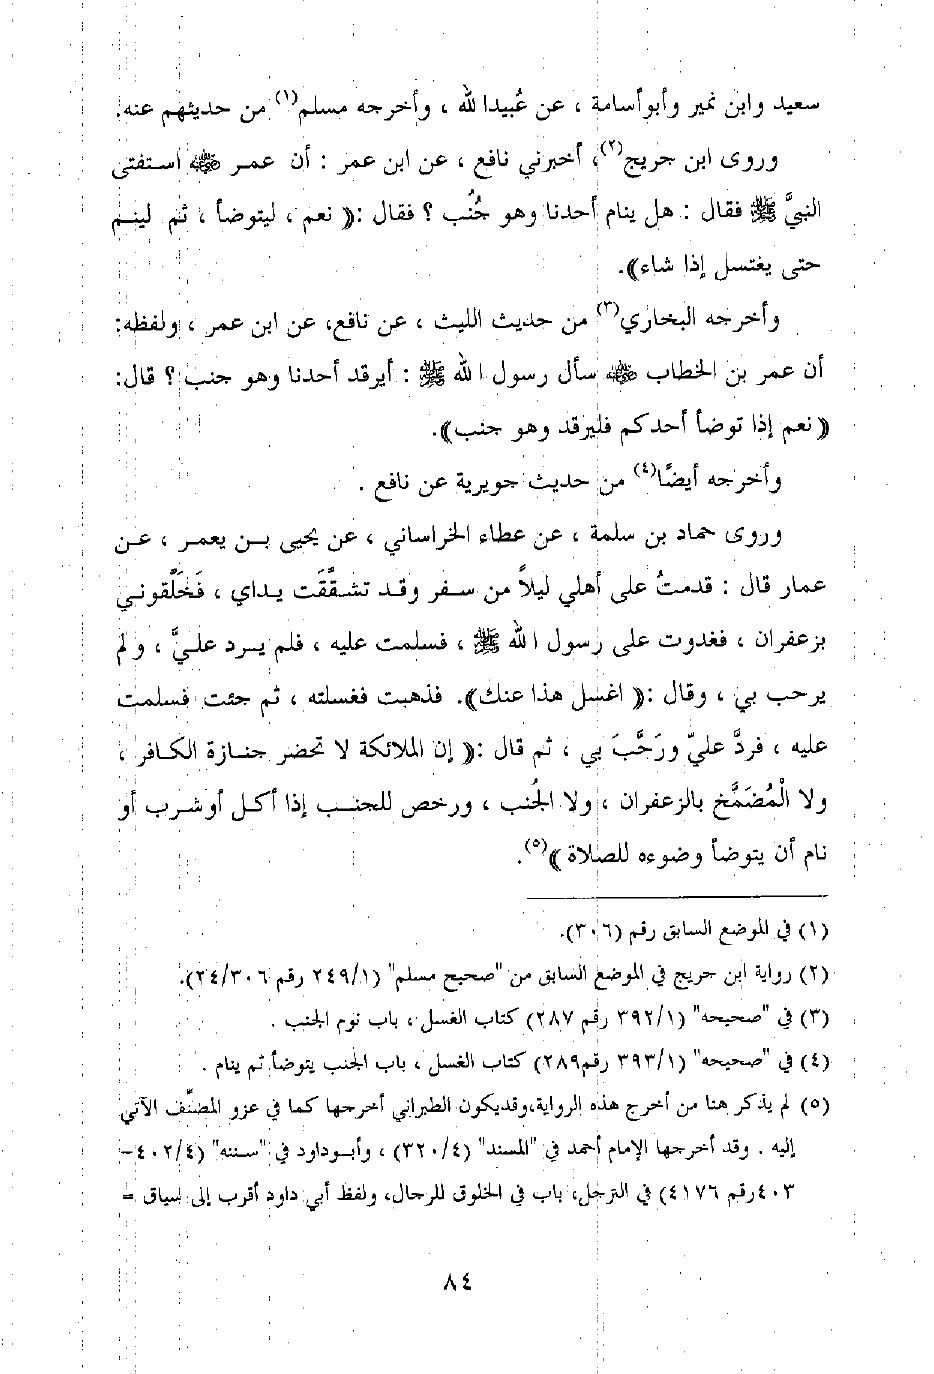 سعيد وابن نمير وأبوأسامة ، عن عُبيدا لله ، وأخرجه مسلم(١) من حديثهم عنه.
وروى ابن جريج(٢)، أخبرني نافع ، عن ابن عمر : أن عمر ﷺ استفتى
النبيَّ ﷺ فقال : هل ينام أحدنا وهو جُنُب ؟ فقال :(( نعم ، ليتوضأ ، ثم لينم
حتى يغتسل إذا شاء)).
وأخرجه البخاري(٣) من حديث الليث ، عن نافع، عن ابن عمر ، ولفظه:
أن عمر بن الخطاب ﷺ سأل رسول ا لله ﷺ : أيرقد أحدنا وهو جنب ؟ قال:
(( نعم إذا توضأ أحدكم فليرقد وهو جنب)).
وأخرجه أيضًا(٤) من حديث جويرية عن نافع .
وروى حماد بن سلمة ، عن عطاء الخراساني ، عن يحيى بن يعمر ، عن
عمار قال : قدمتُ على أهلي ليلاً من سفر وقد تشقَّقَت يداي ، فَخَلَّقوني
بزعفران ، فغدوت على رسول ا لله ﷺ ، فسلمت عليه ، فلم يرد عليَّ ، ولم
يرحب بي ، وقال :(( اغسل هذا عنك)). فذهبت فغسلته ، ثم جئت فسلمت
عليه ، فردَّ عليّ ورَحَّبَ بي ، ثم قال :(( إن الملائكة لا تحضر جنازة الكافر ،
ولا الْمُضَمَّخ بالزعفران ، ولا الجُنب ، ورخص للجنب إذا أكل أوشرب أو
نام أن يتوضأ وضوءه للصلاة ))(٥).
(١) في الموضع السابق رقم (٣٠٦).
(٢) رواية ابن جريج في الموضع السابق من "صحيح مسلم" (٢٤٩/١ رقم ٢٤/٣٠٦).
(٣) في "صحيحه" (٣٩٢/١ رقم ٢٨٧) كتاب الغسل ، باب نوم الجنب .
(٤) في "صحيحه" (٣٩٣/١ رقم٢٨٩) كتاب الغسل ، باب الجنب يتوضأ ثم ينام .
(٥) لم يذكر هنا من أخرج هذه الرواية،وقديكون الطبراني أخرجها كما في عزو المصنِّف الآتي
إليه . وقد أخرجها الإمام أحمد في "المسند" (٣٢٠/٤) ، وأبوداود في "سننه" (٤٠٢/٤-
٤٠٣رقم ٤١٧٦) في الترجل، باب في الخلوق للرجال، ولفظ أبي داود أقرب إلى سياق =
٨٤